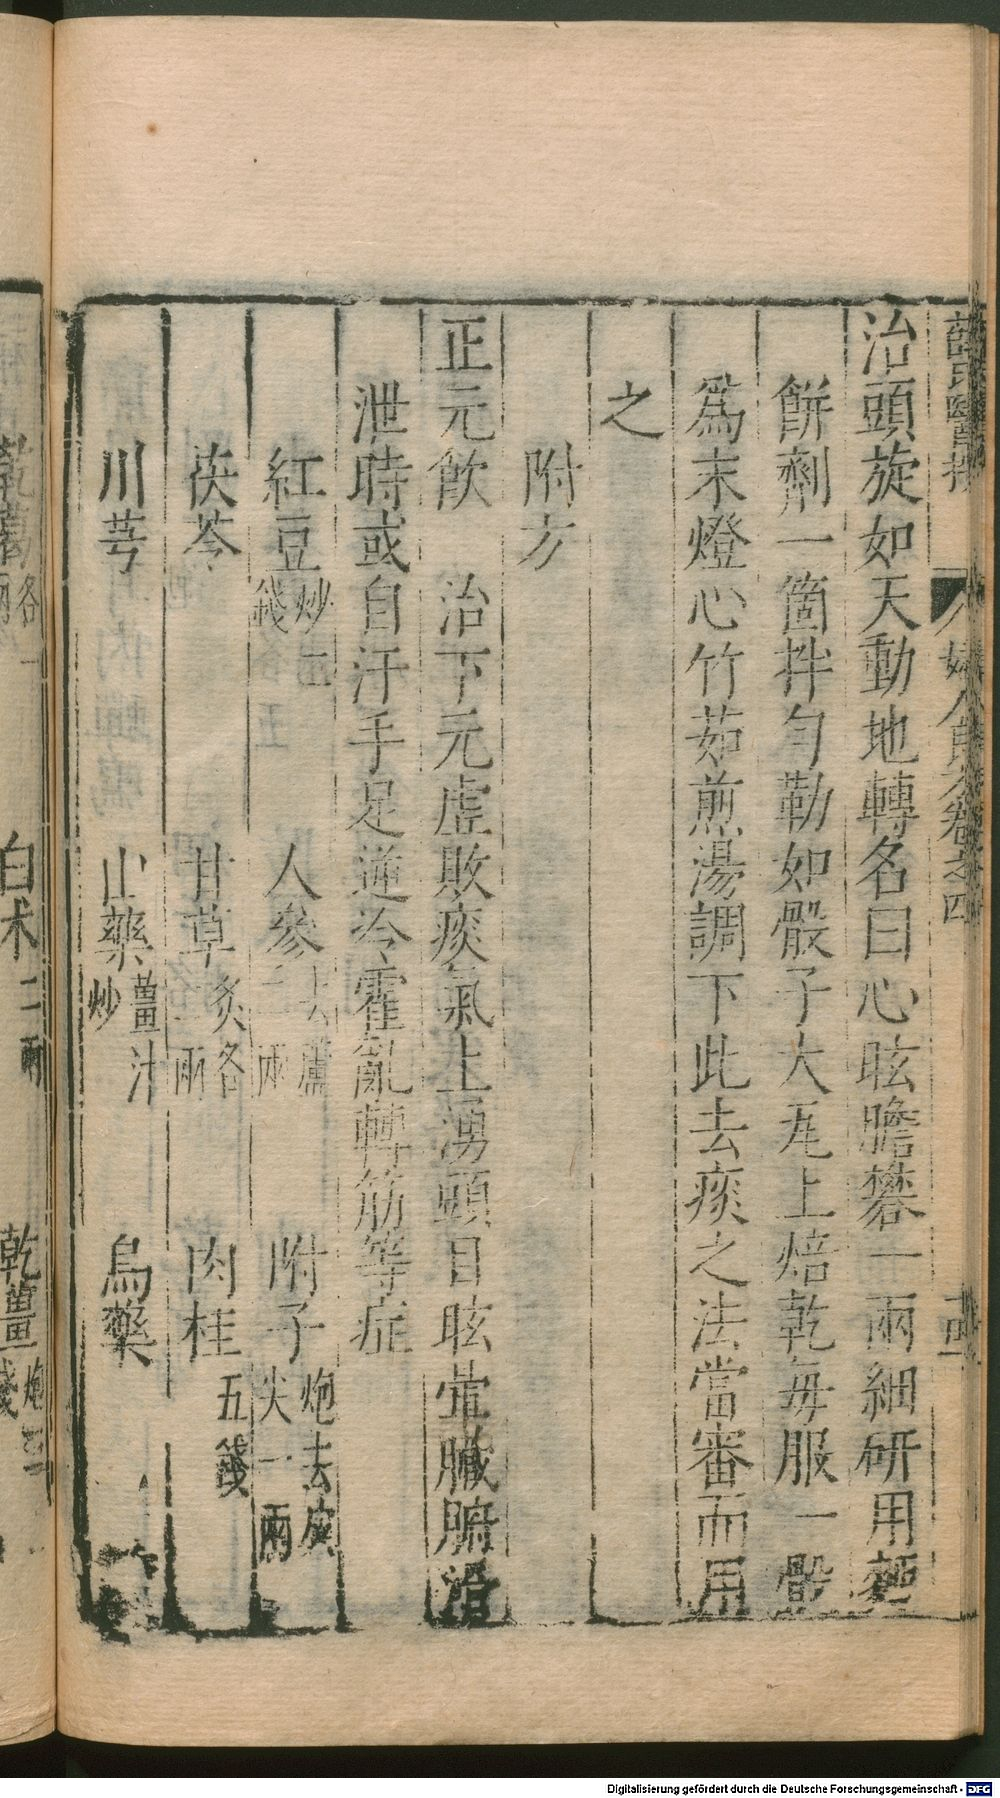 薛氏醫按 婦人良方卷之四
治頭旋如天動地轉名曰心眩膽礬一兩細研用
餅劑一箇拌勻勒如骰子大瓦上焙乾每服一骰
爲末燈心竹茹煎湯調下此去痰之法當審而用
之
附方
正元飲 治下元虛敗痰氣上湧頭目眩暈臟腑滑
泄時或自汗手足逆冷霍亂轉筋等症
紅豆炒三錢 人參去蘆二兩 附子炮去皮尖一兩
茯苓 甘草炙各一兩 肉桂五錢
川芎 山藥薑汁炒 烏藥
乾葛各一兩 白术二兩 乾薑炮三錢
Digitalisierung gefördert durch die Deutsche Forschungsgemeinschaft - DFG